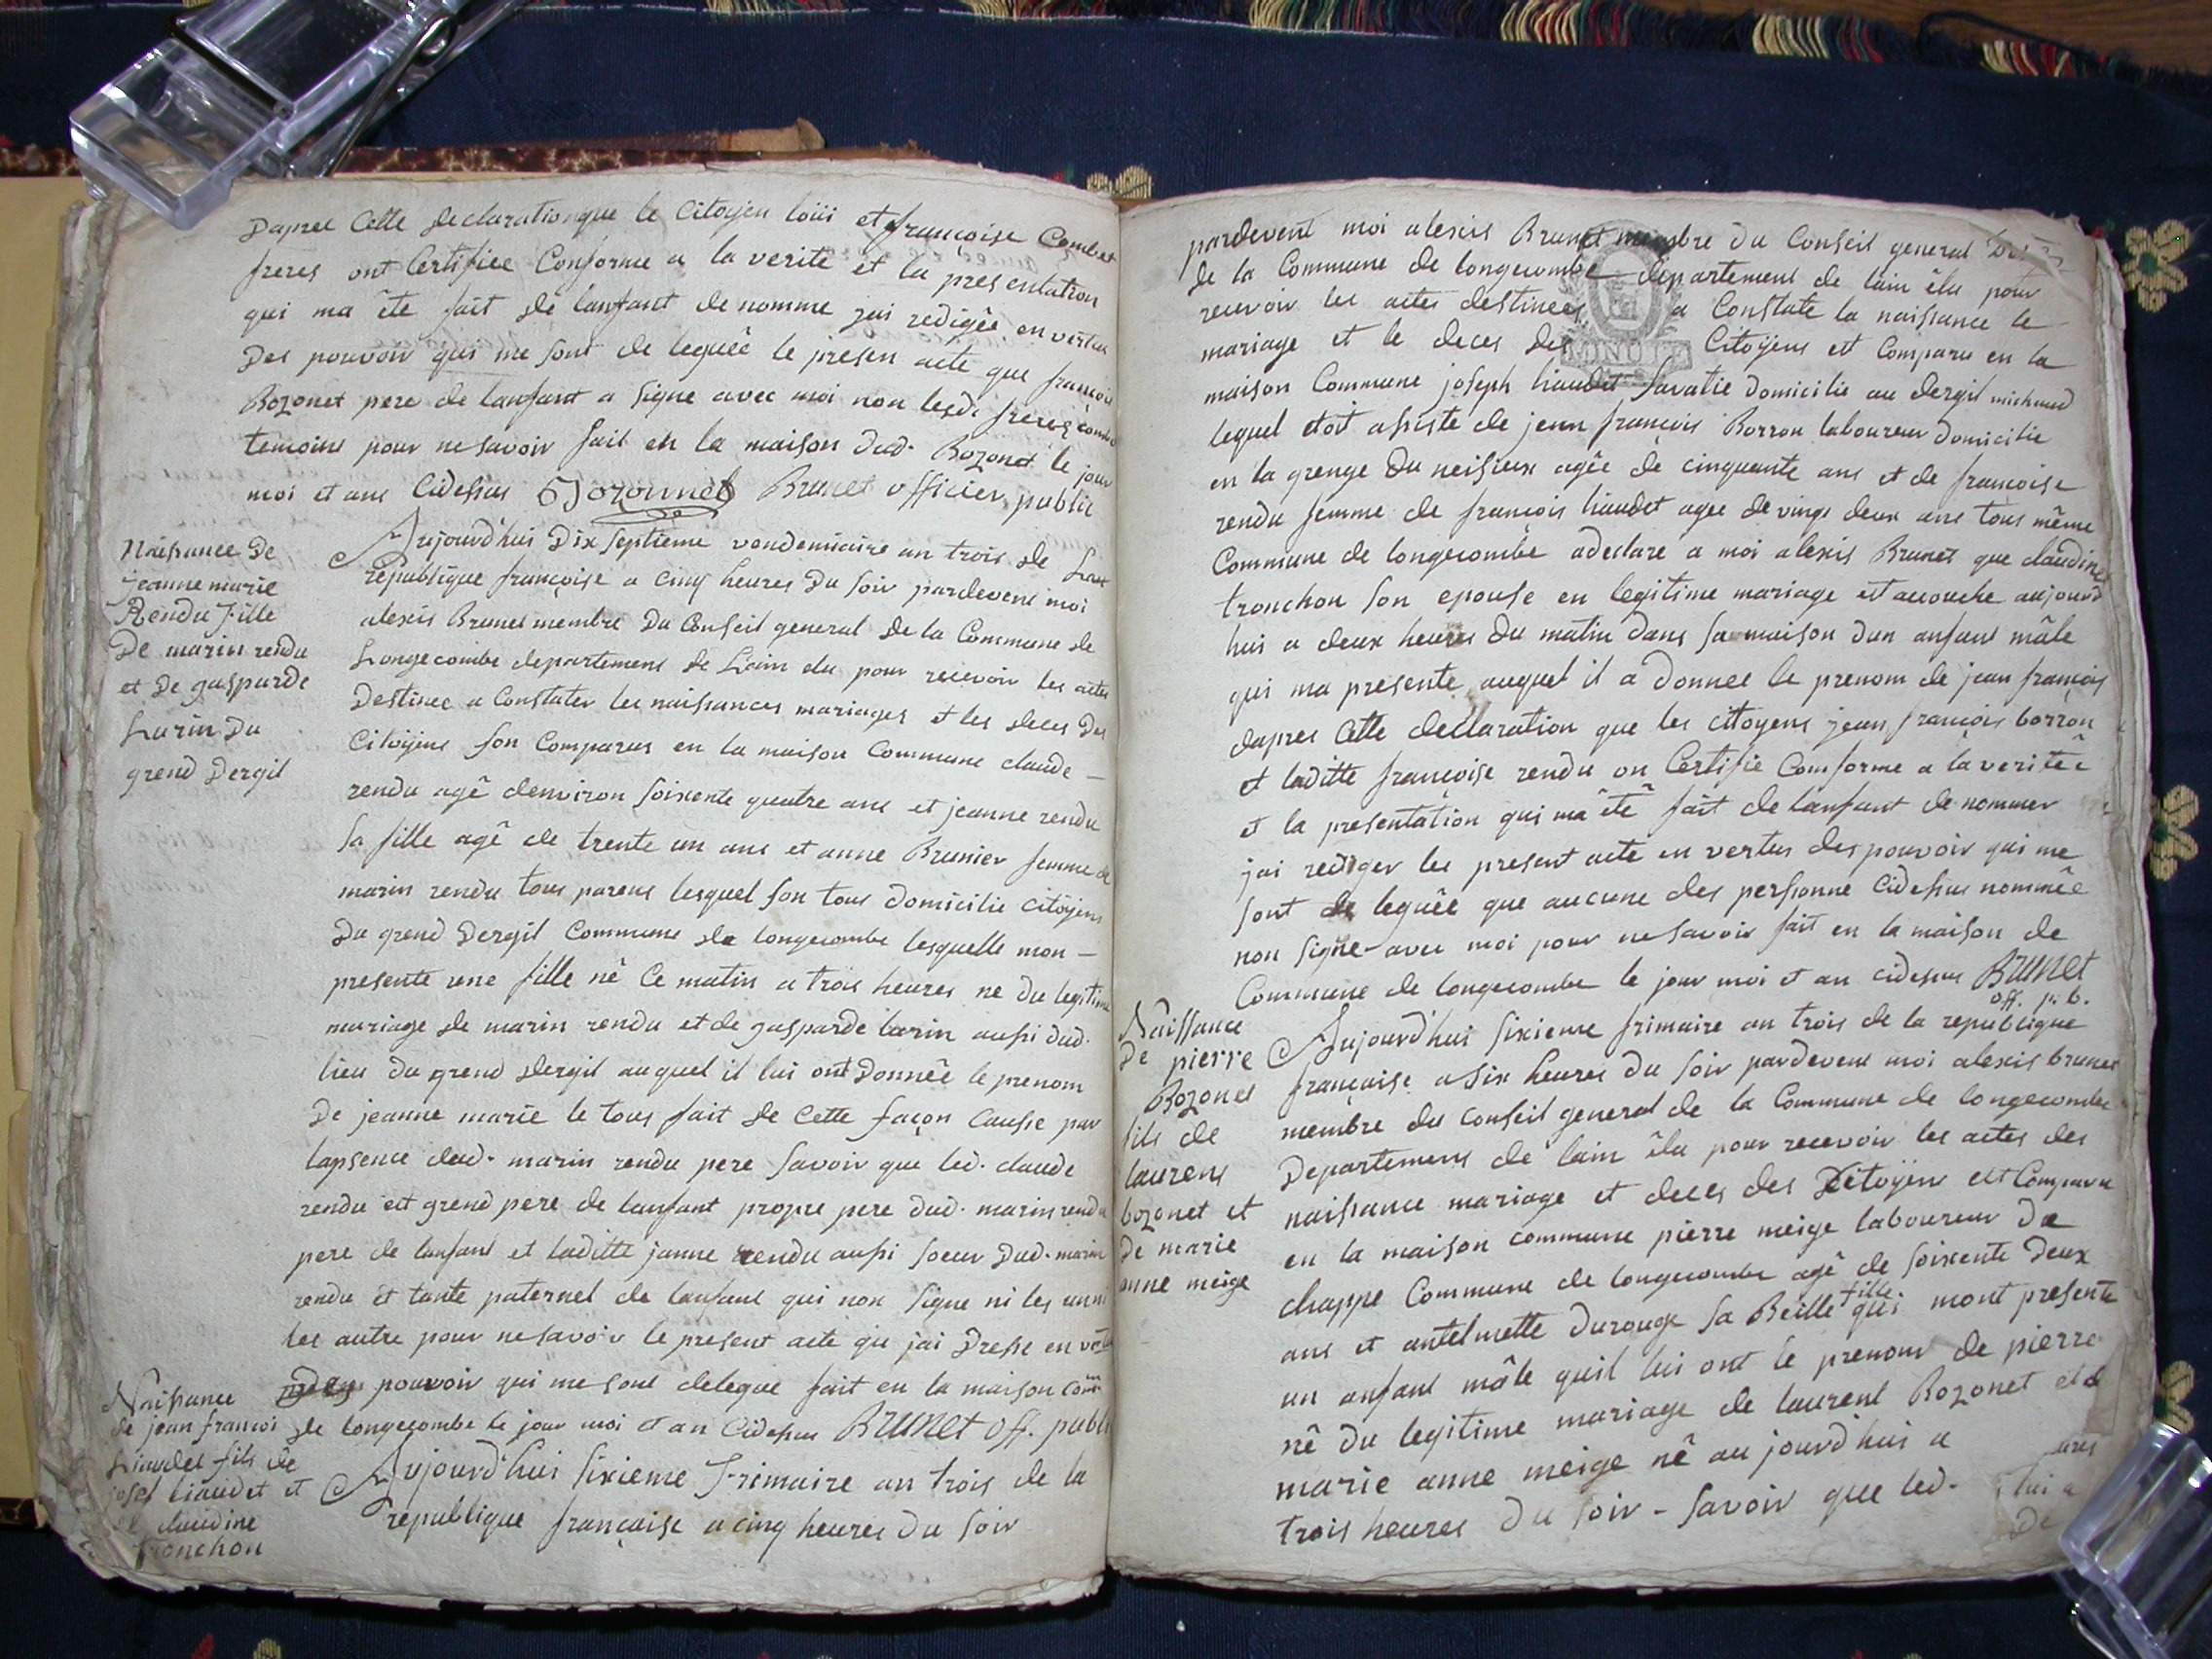 Dapree Cette declaration que le Citoyen loüi et françoise Combet
freres ont Certifiee Conforme a la verite et la presentation
qui ma ête fait de lanfant de nomme jai redigêe en vertus
Des pouvoir qui me sont de leguêe le presen acte que francois
Bozonet pere de lanfant a signe avec moi non lesd. freres combet
temoins pour ne savoir fait en la maison dud. Bozonet le jour
moi et ans Cidessus Bozonnet Brunet officier public
Naissance De
jeanne marie
Rendu Fille
De marin rendu
et De gasparde
Larin Du
grend Dergil
Aujourd'hui Dix septieme vendemiaire an trois de
republique françoise a cinq heures Du soir pardevent moi
alexis Brunet membre Du Conseil general De la Commune de
Longecombe departement de L'ain elu pour recevoir les actes
Destinee a Constater les naissances mariages et les deces Des
Citoÿens son Comparus en la maison Commune claude –
rendu agê denviron soixente quatre ans et jeanne rendu
sa fille agê de trente un ans et anne Brunier femme de
marin rendu tous parens lesquel son tous domicilie citoÿens
Du grend Dergil Commune de longecombe lesquelle mon –
presente une fille nê Ce matin a trois heures ne du legitime
mariage de marin rendu et de gasparde larin aussi dud.
lieu du grend dergil auquel il lui ont Donnêe le prenom
De jeanne marie le tous fait de Cette façon Causse par
lapsence dud. marin rendu pere savoir que led. claude
rendu est grend pere de lanfant propre pere dud. marin rendu
pere de lanfant et laditte janne rendu aussi soeur dud. marin
rendu et tante paternel de lanfant qui non signe ni les unni
les autre pour ne savoir le present acte qu jai Dresse en vertu
pouvoir qui me sont delegue fait en la maison com
de longecombe le jour moi et an Cidessus Brunet off. publi
Naissance
de jean francoi
Liaudet fils de
josef liaudet et
de claudine
tronchon
Aujourd'hui sixieme Frimaire an trois de la
republique française a cinq heures Du soir
pardevent moi alexis Brunet membre du Conseil general
de la Commune de longecombe departement de lain êlu pour
recevoir les actes destinees a Constate la naissance le
mariage et le deces des Citoÿens est Comparu en la
MINUTE
maison Commune joseph liaudet savatie domicilie au dergil michaud
lequel etoit assiste de jean françois Borron laboureur domicilie
en la grenge du neisieux agêe de cinquante ans et de francoise
rendu femme de françois liaudet agee de vingt deux ans tous même
Commune de longecombe a declare a moi alexis Brunet que claudine
tronchon son epouse en legitime mariage est acouche aujourd
hui a deux heures du matin dans sa maison dun anfant mâle
qui ma presente auquel il a donnee le prenom de jean françois
dapres Cette declaration que les citoyens jean françois borron
et laditte françoise rendu on Certifie Comforme a la veritée
et la presentation qui ma êtê fait de l'anfant de nommer
jai rediger les present acte en vertus des pouvoir qui me
sont de leguêe que aucune des personne Cidessus nommêe
non signe avec moi pour ne savoir fait en la maison de
Commune de longecombe le jour moi et an cidessus Brunet
off. p. b.
Naissance
De pierre
Bozonet
fils de
laurens
bozonet et
De marie
anne meige
Aujourd'hui sixieme frimaire an trois de la republique
française a six heures du soir pardevent moi alexis brunet
membre du conseil general de la Commune de longecombe
Departement de lain êlu pour recevoir les actes des
naissance mariage et deces des Citoÿen est Comparu
en la maison commune pierre meige laboureur De
chappe Commune de longecombe agê de soixente deux
ans et antelmette durouge sa Beille fille qui mont presente
un anfant mâle quil lui ont le prenom de pierre
nê du legitime mariage de laurent Bozonet et d
marie anne meige nê au jourd'hui a
trois heures du soir – savoir que led.